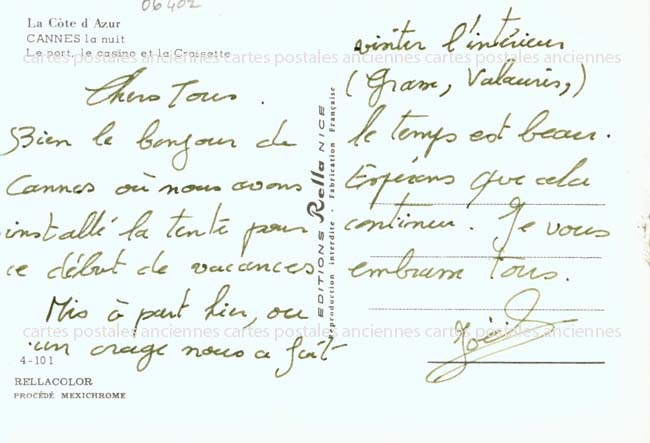 06402
La Côte d'Azur
CANNES la nuit
Le port, le casino et la Croisette
Chers Tous.
Bien le bonjour de
Cannes où nous avons
installé la tente pour
ce début de vacances
Mis à part hier, où
un orage nous a fait
4-101
RELLACOLOR
PROCÉDÉ MEXICHROME
EDITIONS Rella NICE
Reproduction interdite - Fabrication Française
visiter l'intérieur
(Grasse, Valauris,)
le temps est beau.
Espérons que cela
continue. Je vous
embrasse tous.
cartes postales anciennes cartes postales anciennes cartes postales anciennes
cartes postales anciennes cartes postales anciennes cartes postales anciennes